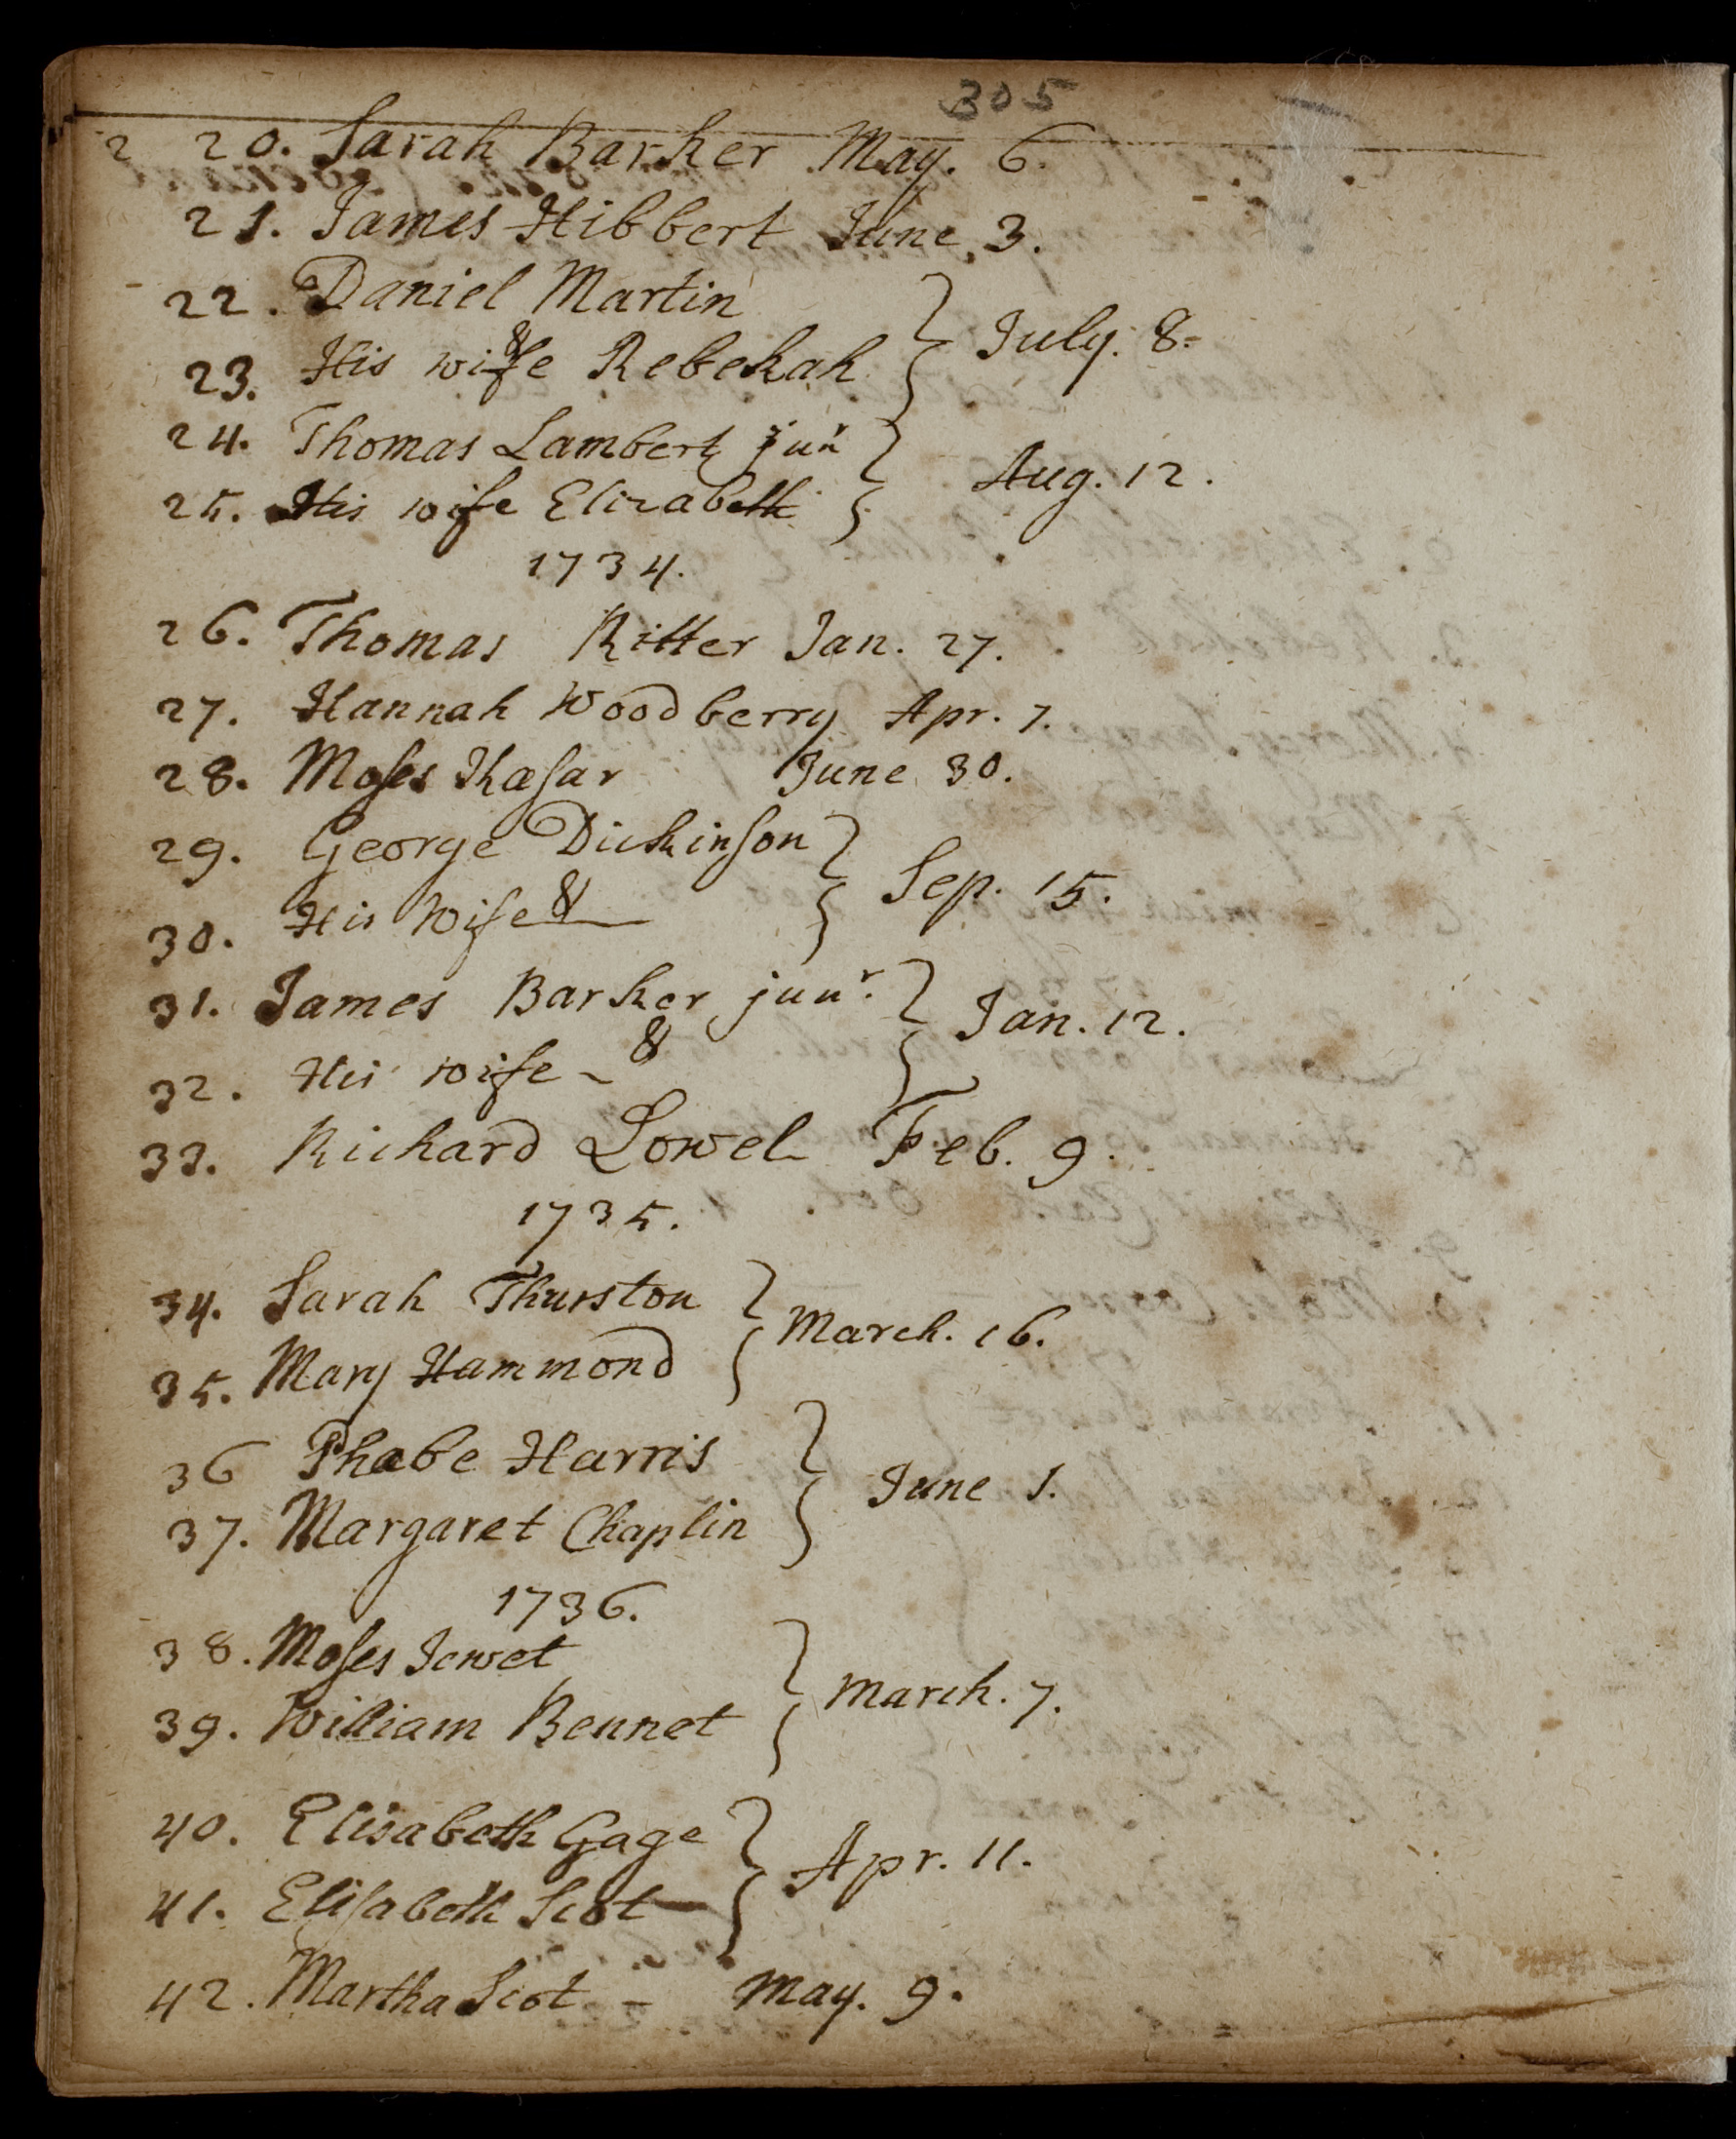 305
2 20. Sarah Barker May. 6.
21. James Hibbert June. 3.
22. Daniel Martin } July. 8.
&
23. His wife Rebekah
24. Thomas Lambert junr } Aug. 12.
25. His wife Elizabeth
1734.
26. Thomas Ritter Jan. 27.
27. Hannah Woodberry Apr. 7.
28. Moses June 30.
29. George Dickinson } Sep. 15.
30. His Wife &
31. James Barker junr. } Jan. 12.
32. His wife - &
33. Richard Lowel Feb. 9.
1735.
34. Sarah Thurston } March. 16.
35. Mary Hammond
36 Phaebe Harris } June 1.
37. Margaret Chaplin
1736.
38. Moses Jewet } March. 7.
39. William Bennet
40. Elisabeth Gage } Apr. 11.
41. Elisabeth Scot
42. Martha Scot - May. 9.